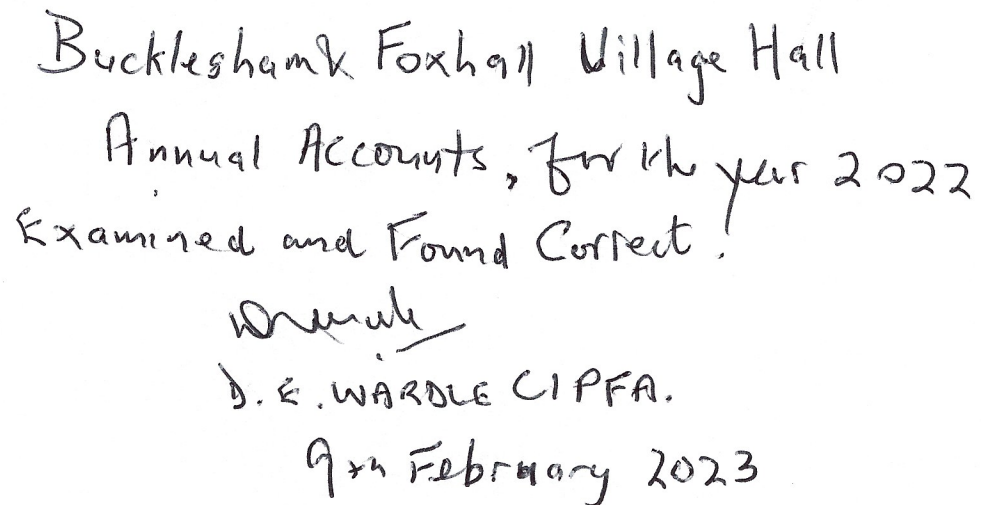 Bucklesham & Foxhall Village Hall
Annual Accounts, for the year 2022
Examined and Found Correct!
D. E. WARDLE CIPFA.
9th February 2023